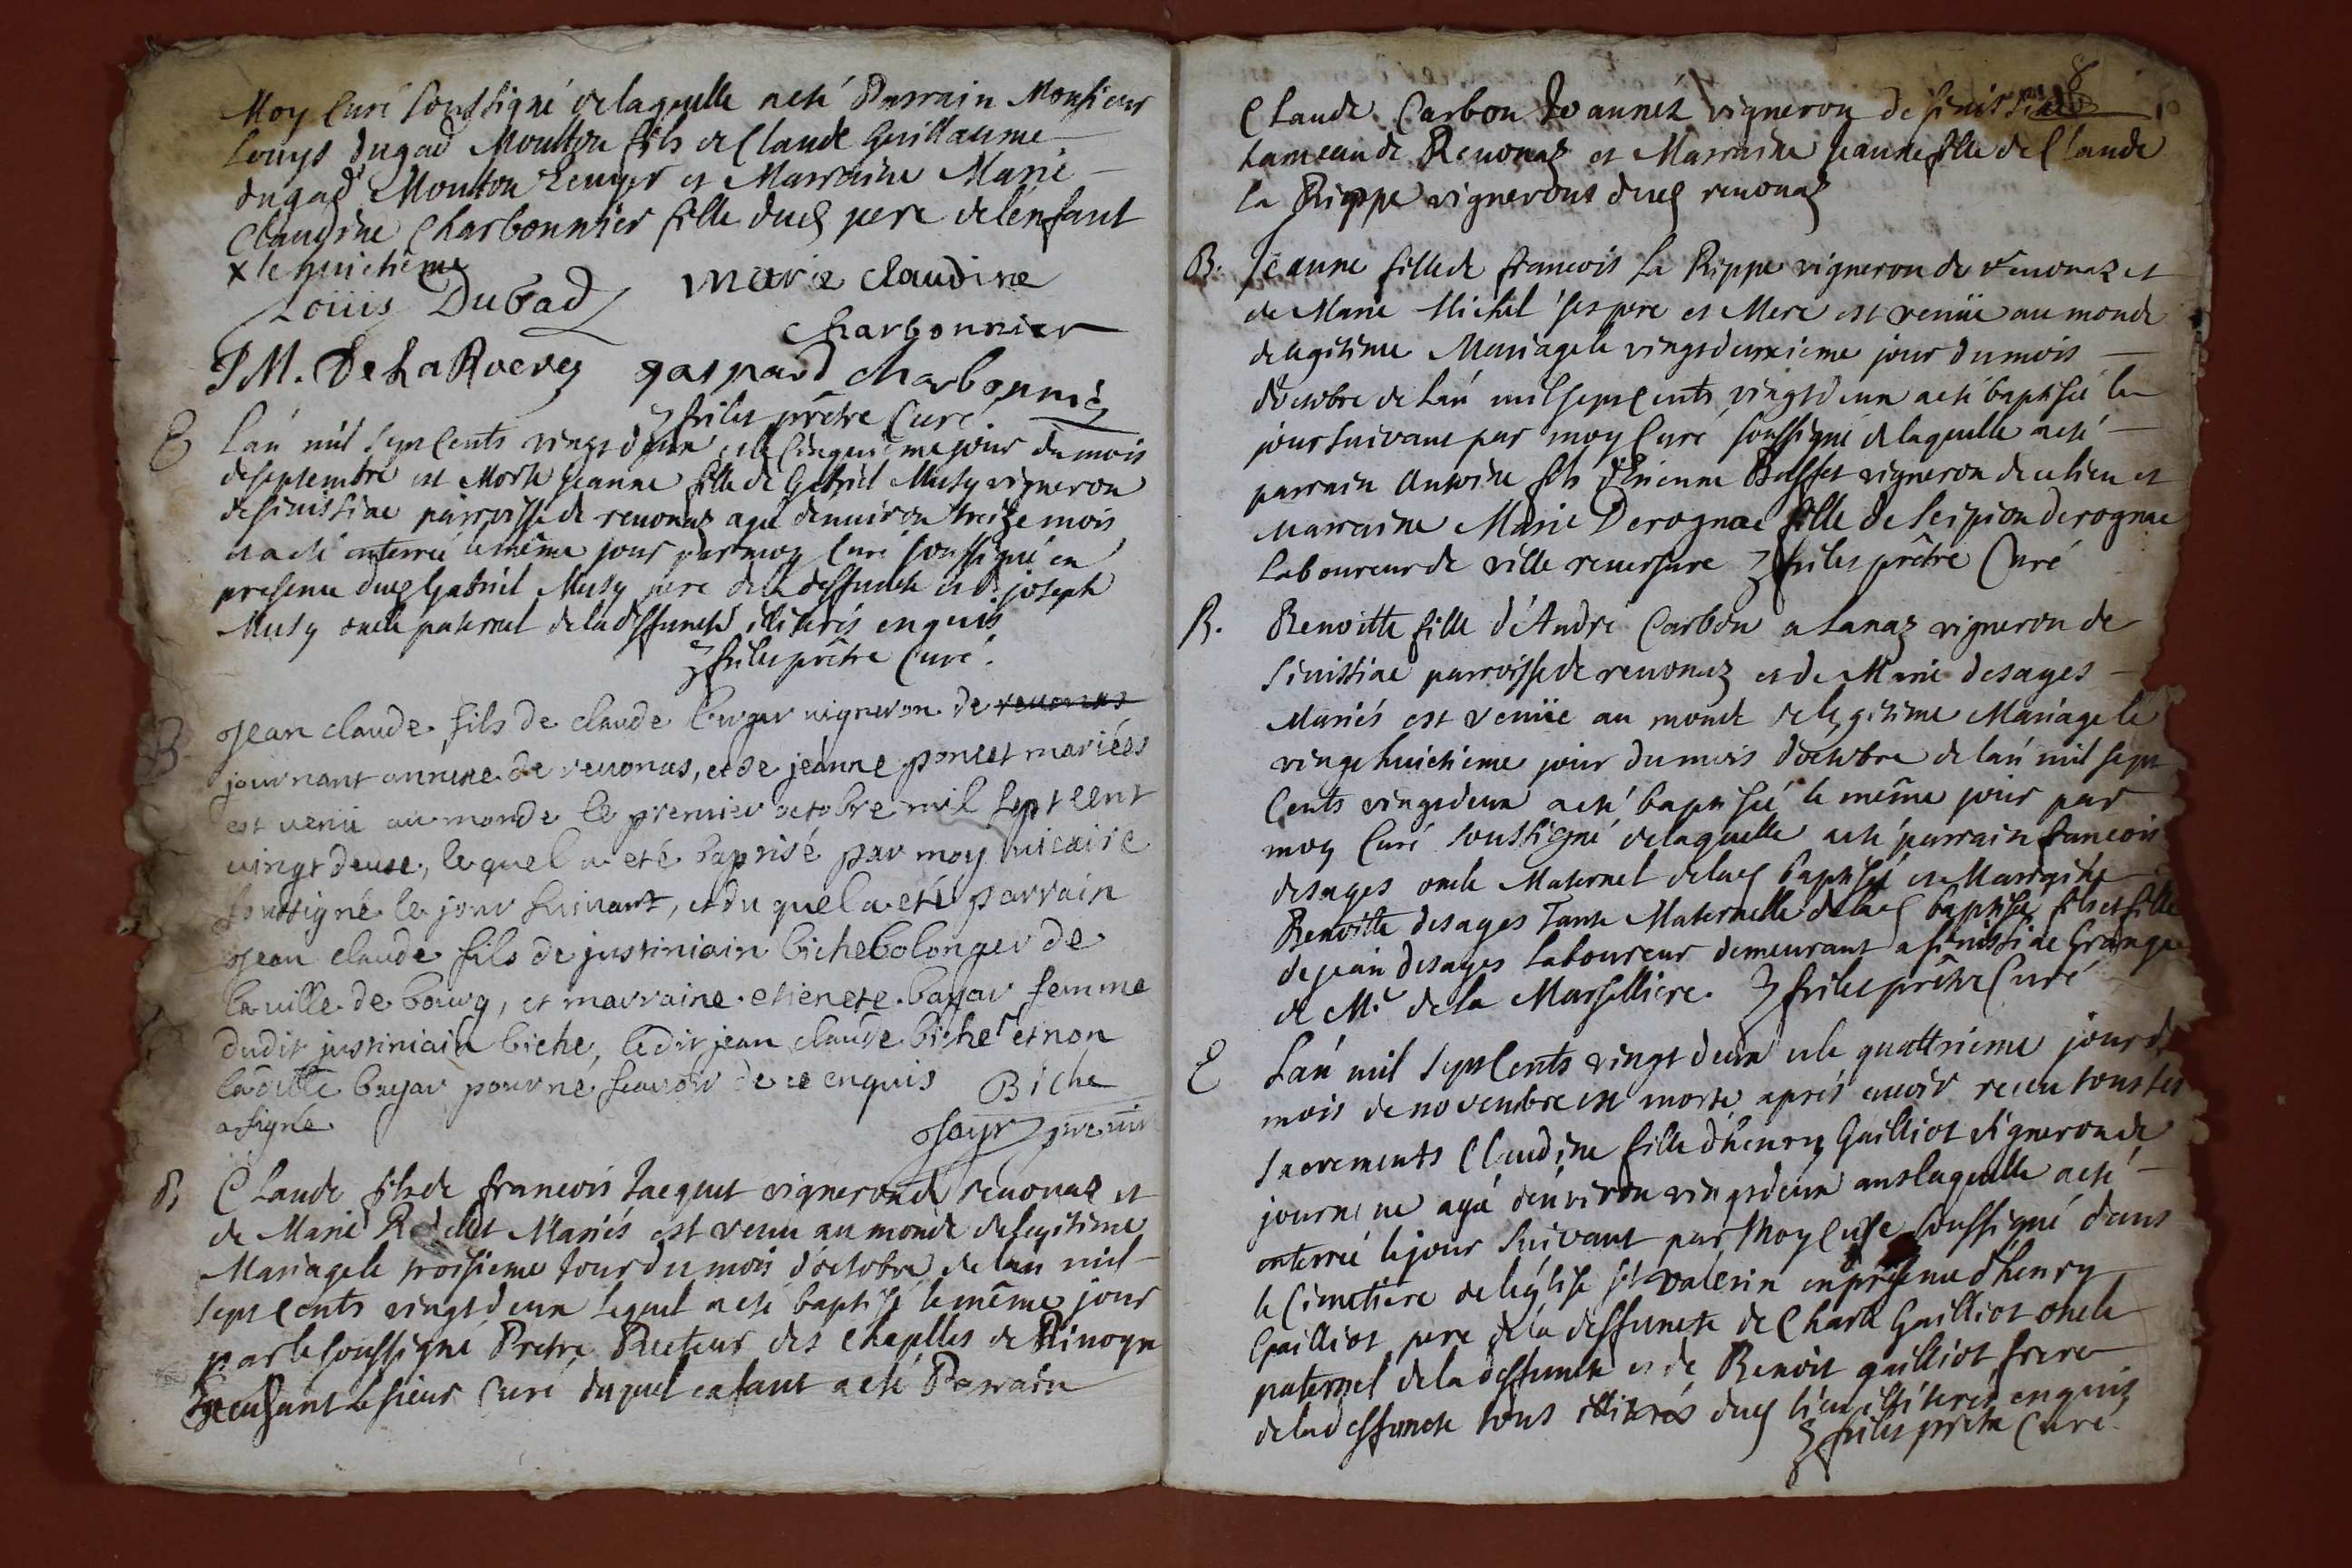 Moy Curé soussigné delaquelle a eté Parrain Monsieur
Louys dugad Moulton fils de Claude Guillaume
dugad Mouton Ecuyer et Marraine Marie
Claudine Charbonnier fille dud pere de lenfant
x le huictieme
Louis Dugad Marie Claudine
Charbonnier
J M. De La Roevey gaspard Charbonnié
friles prêtre Curé
E Lan mil sept Cents vingt deux et le Cinquieme jour du mois
de septembre est Morte Jeanne fille de Gabriel Musy vigneron
de sinissiac parroisse de reuonaz agé denuiron treize mois
et a eté enterrée le même jour par moy Curé soussigné en
presence dud Gabriel Musy pere de la deffuncte et de joseph
Musy oncle paternel de la deffuncte illiterés enquis
friles prêtre Curé.
B Jean claude fils de claude berger uigneron de reuonas
journant annexe de reuonas, et de jeanne poncet mariées
est uenü au monde le premier octobre mil sept cent
uingt deuse, le quel a eté baptisé par moy uicaire
soussigné le jour suiuant, et du quel a eté parrain
Jean claude fils de justiniain biche bolonger de
la uille de bourg, et marraine etienete bayar femme
dudit justiniain biche, ledit jean claude biche et non
laditte bayar pour né scauoir de ce enquis Biche
a signé
Jayr
B Claude fils de francois Jacquet vigneron de reuonaz et
de Marie Mariés est venu au monde de legitime
Mariage le troisieme Jour du mois d'octobre de lan mil
sept Cents vingt deux lequel a eté baptisé le même jour
par le soussigné Pretre Recteur des Chapelles de
le sieur Curé duquel enfant a eté Parrain
8
Claude Carbon Jeannéz vigneron de sinissiac
hameau de Reuonaz et Marraine Jeanne fille de Claude
la Rippe vignerons dud reuonaz
B. Jeanne fille de francois La Rippe vigneron de reuonaz et
de Marie Michel ses pere et Mere est venüe au monde
de legitime Mariage le vingt deuxieme jour du mois
d'octobre de Lan mil sept Cents vingt deux a eté baptisée le
jour suivant par moy Curé soussigné de laquelle a eté
parrain Antoine fils d'Etienne vigneron de ce lieu et
Marraine Marie Derognac fille de Scipion derognac
Laboureur de ville reuersure friles prêtre Curé
B. Benoitte fille d'André Carbon a Lanaz vigneron de
Sinissiac parroisse de reuonaz et de Marie desages
Mariés est venüe au monde de legitime Mariage le
vingt huictieme jour du mois d'octobre de lan mil sept
Cents vingt deux a eté baptisée le même jour par
moy Curé soussigné de laquelle a eté parrain francois
desages oncle Maternel de lad baptisée et Marraine
Benoitte desages Tante Maternelle de lad baptisée fils et fille
de jean desages Laboureur demeurant a sinissiac Grange
de Mr de la Marselliere. friles prêtre Curé
E Lan mil sept Cents vingt deux et le quattrieme jour d
mois de novembre est morte aprés auoir receu tous les
sacrements Claudine fille d'henry Gailliot vigneron de
journant agé denviron vingt deux ans laquelle a eté
enterrée le jour suivant par Moy Curé soussigné dans
le Cimetiere de leglise St valerin en presence d'henry
Gailliot pere de la deffuncte de Charle Gailliot oncle
paternel de la deffuncte et de Benoit gailliot frere
de la deffuncte tous illiterés dud lieu illiterés enquis
friles prêtre Curé.